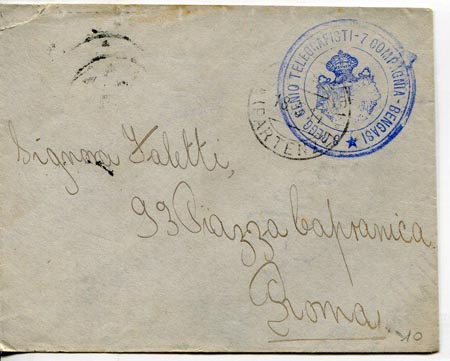 GENIO TELEGRAFISTI - 7 COMPAGNIA - BENGASI ★
Signna Faletti,
93 Piazza Capranica
Roma
10